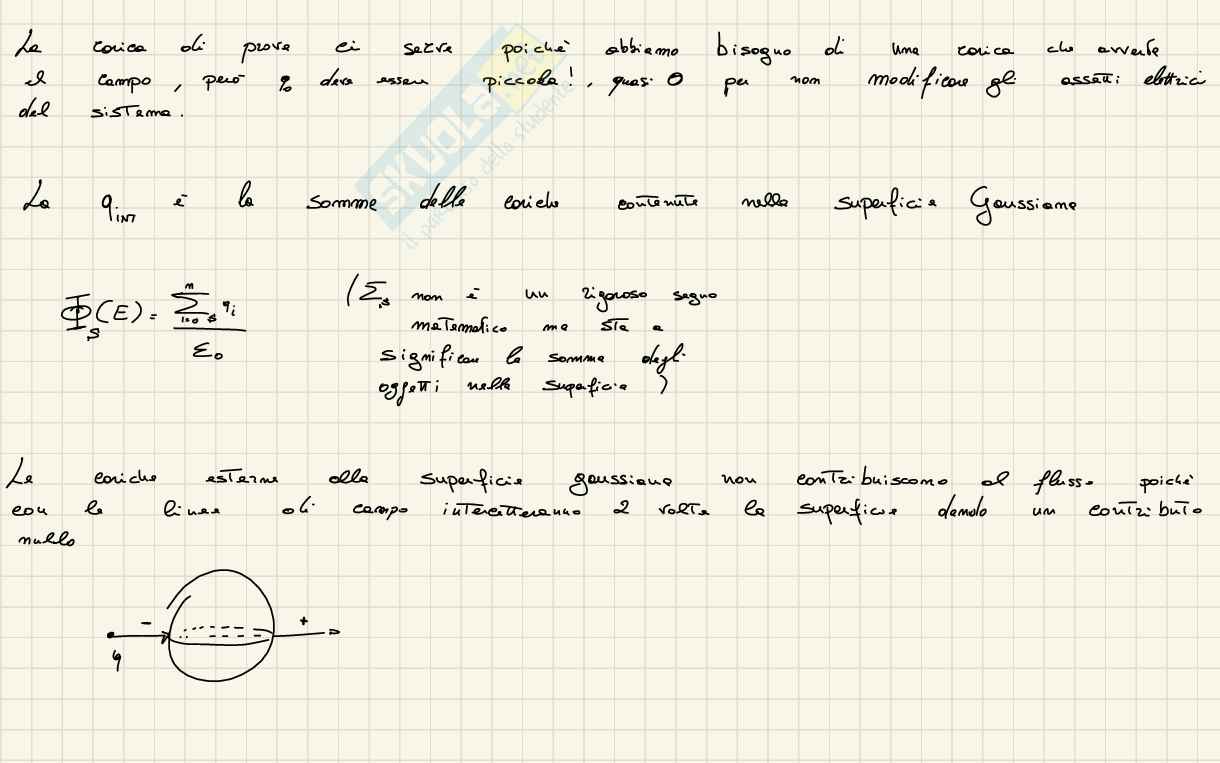 La carica di prova ci serve poiché abbiamo bisogno di una carica che avverta
il campo, però q₀ deve essere piccola!, quasi 0 per non modificare gli assetti elettrici
del sistema.
SKUOLA.net
il paradiso dello studente
La q_INT è la somma delle cariche contenute nella superficie Gaussiana
Φ_S(E) = Σ_{i=0 S}^{n} q_i / ε₀
(Σ_S non è un rigoroso segno
matematico ma sta a
significare la somma degli
oggetti nella superficie)
Le cariche esterne alla superficie gaussiana non contribuiscono al flusso poiché
con le linee di campo intercetteranno 2 volte la superficie dando un contributo
nullo
- +
q